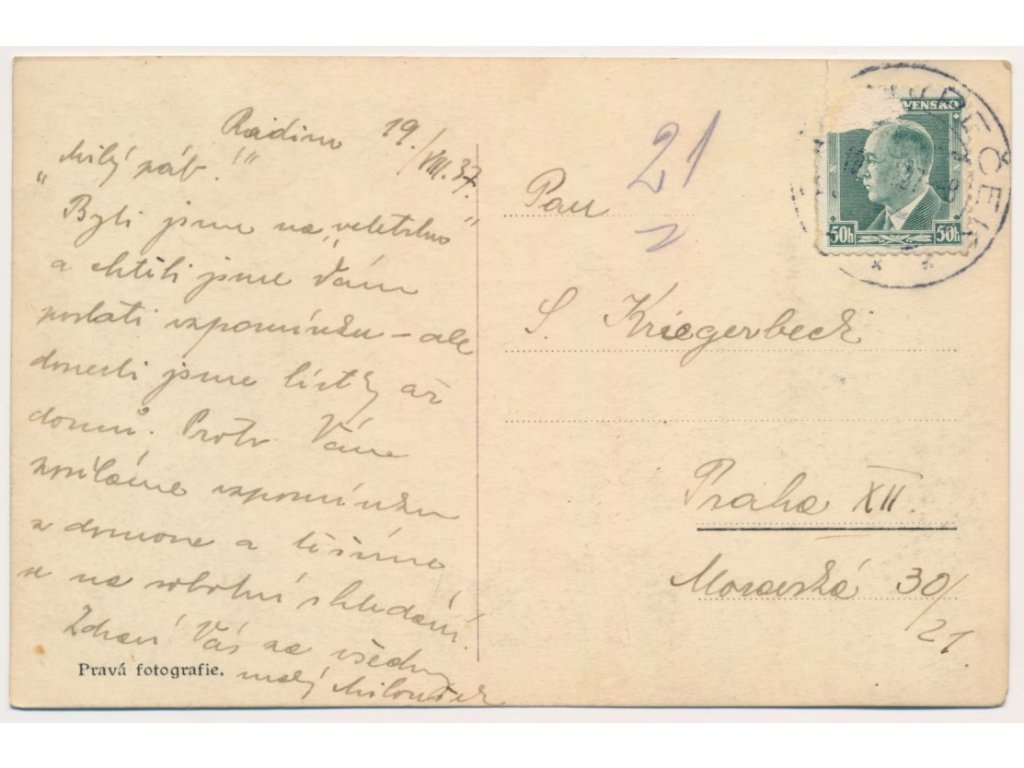 Radim 19./VIII. 37.
Milý
"Byli jsme na "veletrhu"
a chtěli jsme Vám
poslati vzpomínku – ale
donesli jsme lístky až
domů. Proto Vám
posíláme vzpomínku
z domova a těšíme
se na sobotní shledání.
Zdraví Vás za všechny
malý Miloušek
Pravá fotografie.
21
Pan
S. Kriegerbeck
Praha XII.
Moravská 30/
21.
VENSKO
50h 50h